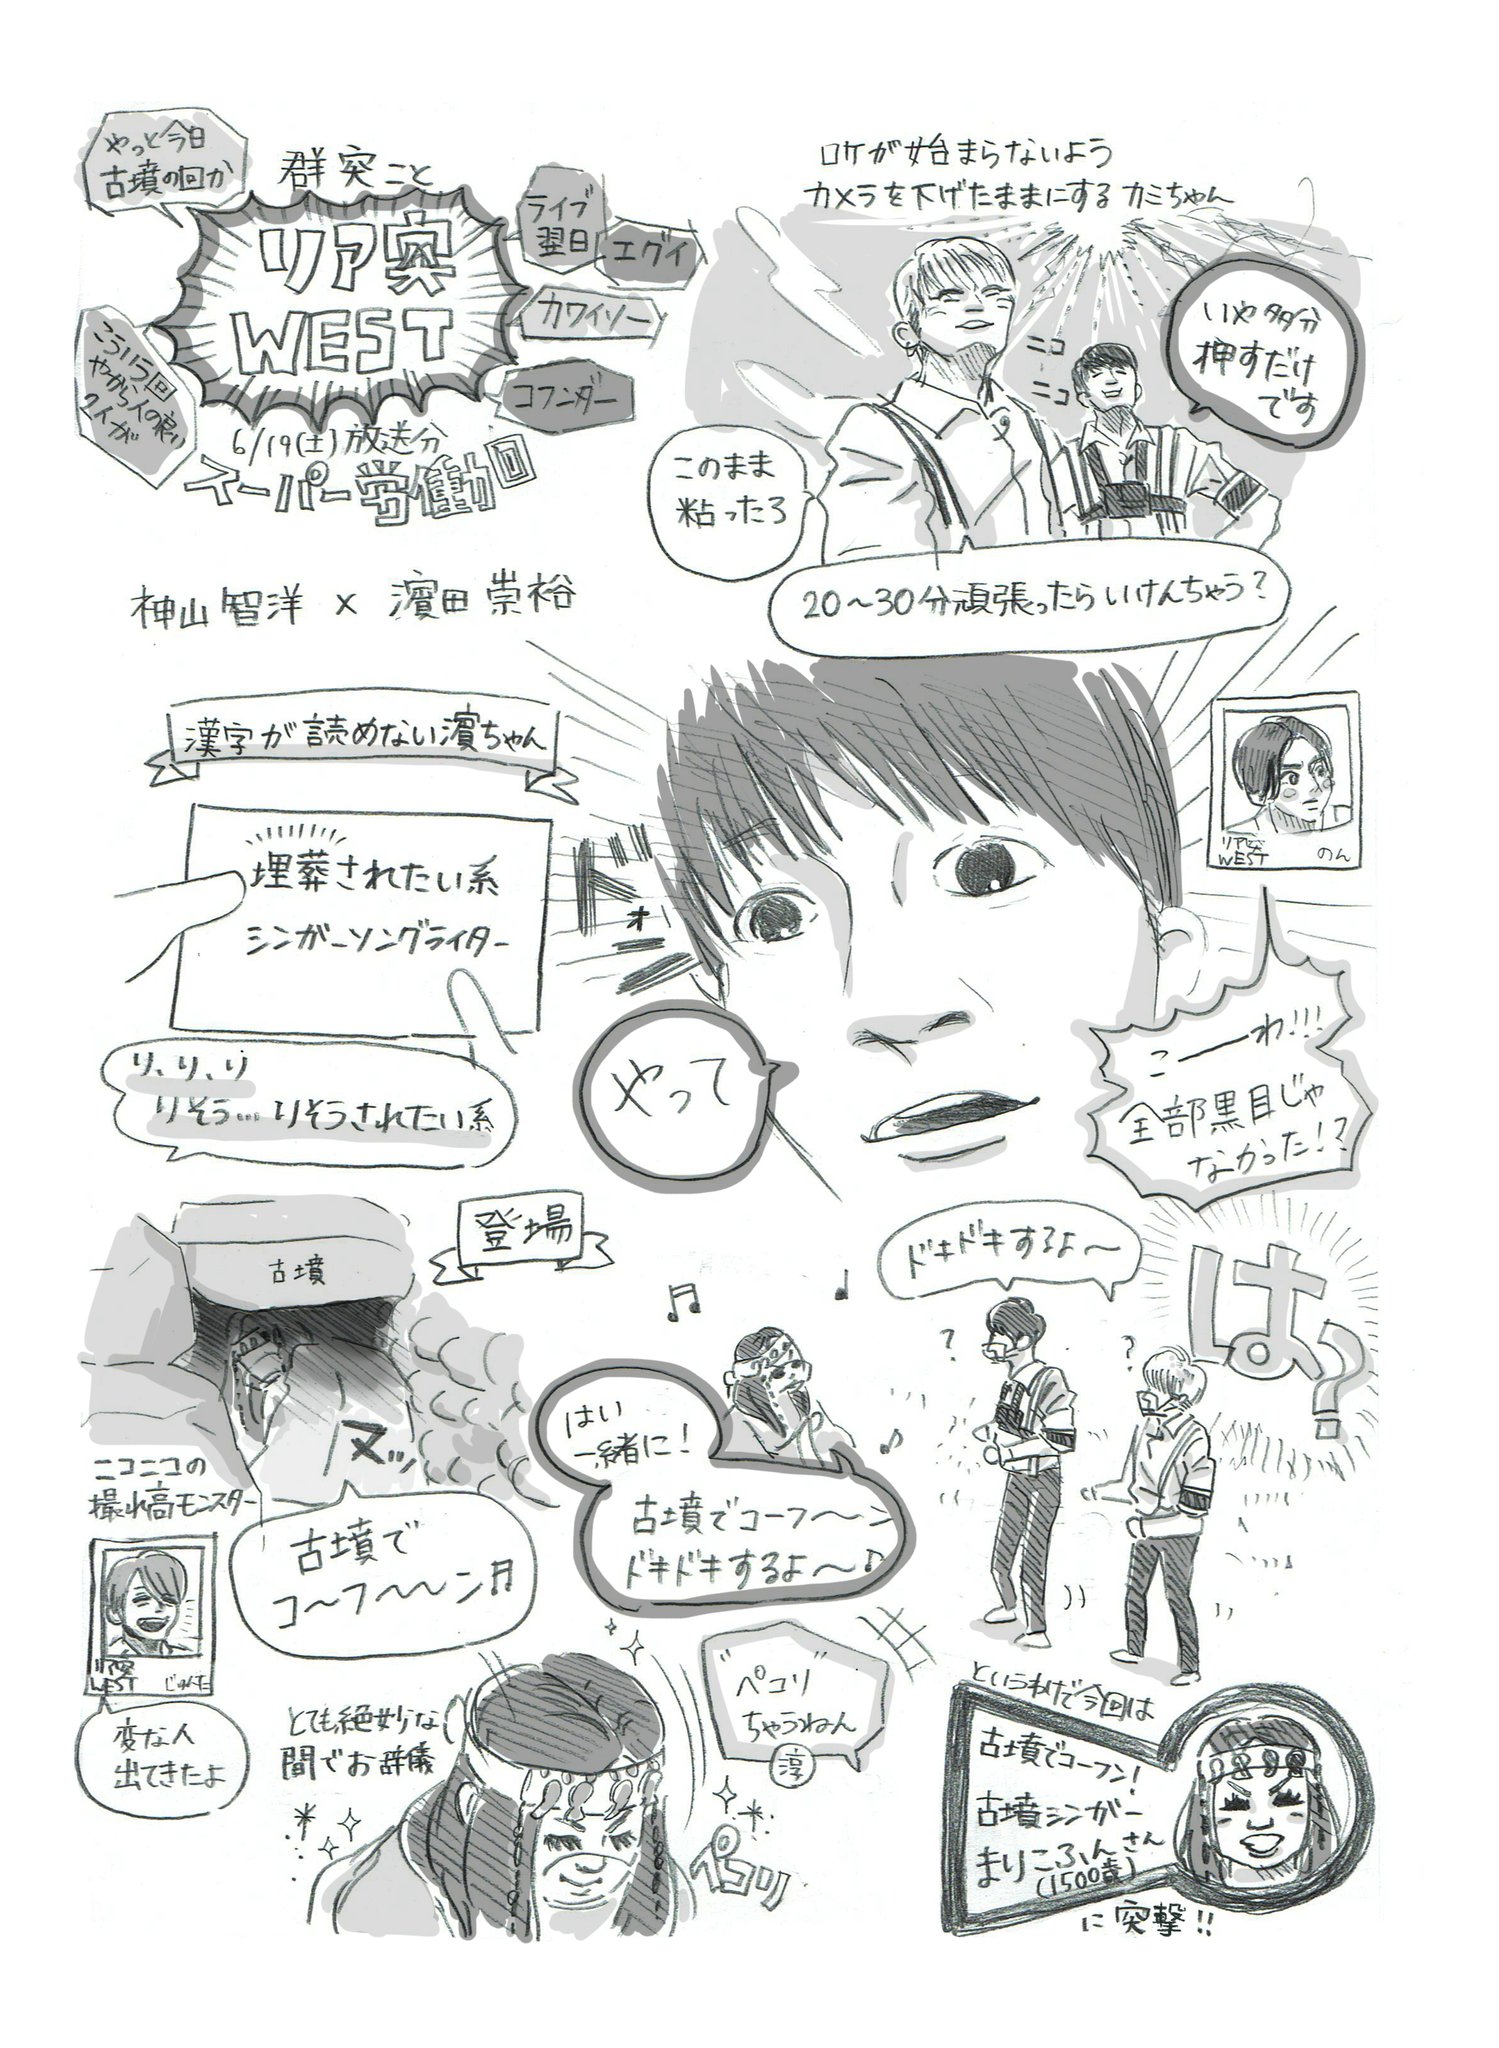 やっと今日
古墳の回か
群突こと
リア突
WEST
ライブ
翌日
エグイ
カワイソー
コフンダー
こういう回
やから人の良い
2人が
6/19(土)放送分
スーパー労働回
神山智洋 × 濵田崇裕
ロケが始まらないよう
カメラを下げたままにするカミちゃん
ニコ
ニコ
いや多分
押すだけ
です
このまま
粘ったろ
20～30分頑張ったらいけんちゃう?
漢字が読めない濵ちゃん
埋葬されたい系
シンガーソングライター
り、り、り
りそう…りそうされたい系
ドォーン
やって
リア突
WEST
のん
こーーわ!!!
全部黒目じゃ
なかった!?
登場
古墳
ヌッ
ニコニコの
撮れ高モンスター
古墳で
コ～フ～～ン♬
リア突
WEST
じゅんた
変な人
出てきたよ
はい
一緒に!
古墳でコーフ～～ン
ドキドキするよ～♪
ドキドキするよ～
は?
?
?
とても絶妙な
間でお辞儀
ペコリ
"ペコリ"
ちゃうねん
淳
というわけで今回は
古墳でコーフン!
古墳シンガー
まりこふんさん
(1500歳)
に突撃!!